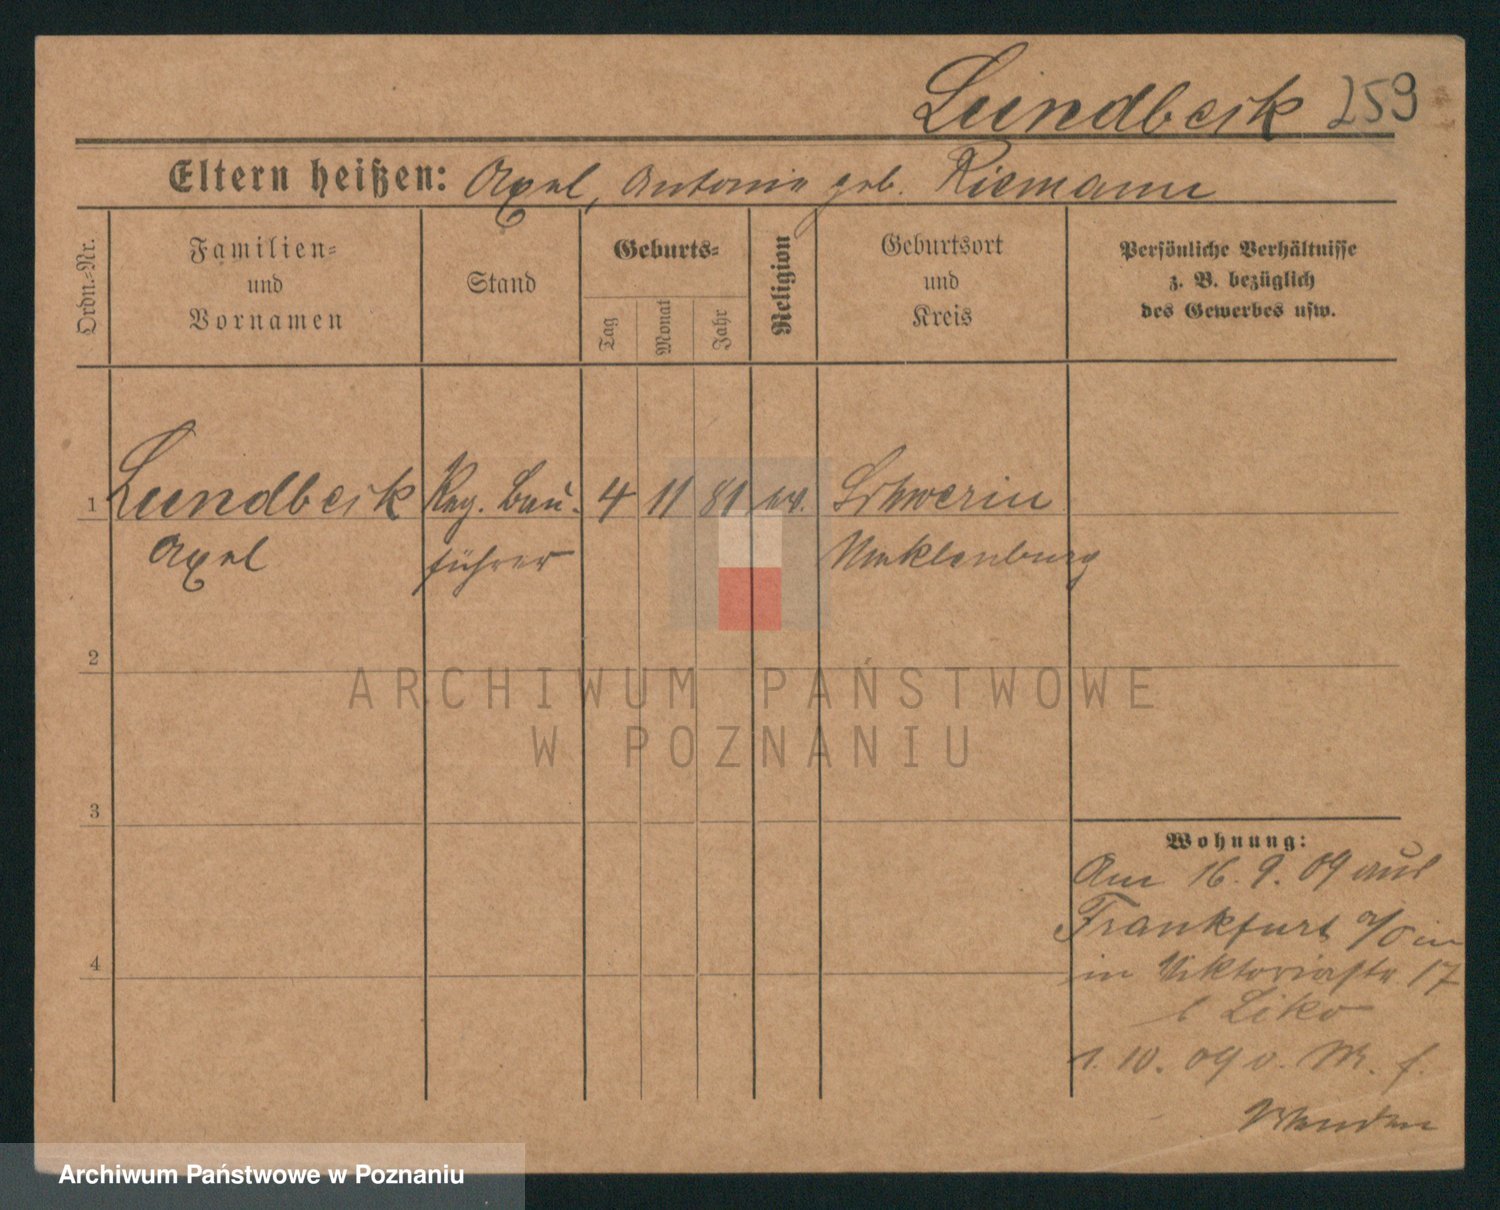 Lundbeck 259
Eltern heißen: Axel, Antonie geb. Riemann
Ordn.-Nr.
Familien-
und
Vornamen
Stand
Geburts-
Tag
Monat
Jahr
Religion
Geburtsort
und
Kreis
Persönliche Verhältnisse
z. B. bezüglich
des Gewerbes usw.
1 Lundbeck Reg. Bau- 4 11 81 ev. Schwerin
Axel führer Mecklenburg
2
3
4
Wohnung:
Am 16. 9. 09 aus
Frankfurt a/O in
in Viktoriastr. 17
b Liko
1. 10. 09 v. M. f.
Wenden
ARCHIWUM PAŃSTWOWE
W POZNANIU
Archiwum Państwowe w Poznaniu